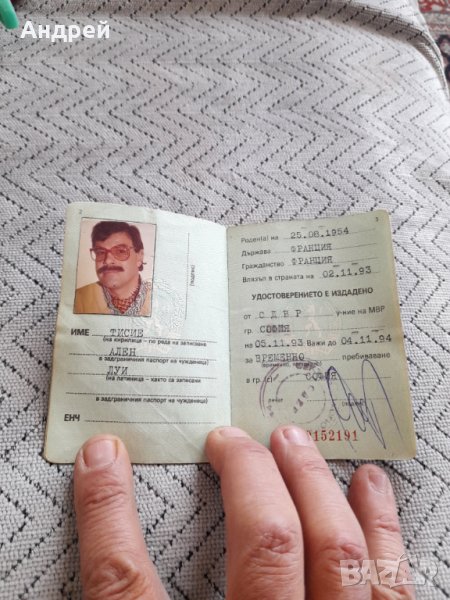 Андрей
2
ИМЕ ТИСИЕ
(на кирилица – по реда на записване
АЛЕН
в задграничния паспорт на чужденеца)
ЛУИ
(на латиница – както са записани
в задграничния паспорт на чужденеца)
ЕНЧ
(подпис)
3
Роден(а) на 25.08.1954
Държава ФРАНЦИЯ
Гражданство ФРАНЦИЯ
Влязъл в страната на 02.11.93
УДОСТОВЕРЕНИЕТО Е ИЗДАДЕНО
от СДВР у-ние на МВР
гр. СОФИЯ
на 05.11.93 Важи до 04.11.94
за ВРЕМЕННО пребиваване
в гр. (с) СОФИЯ
152191
BAZAR